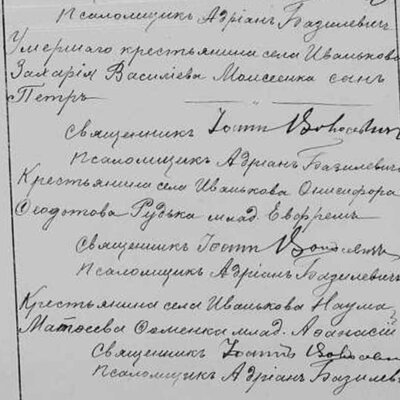 Псаломщикъ Адріанъ Базилевич
Умершаго крестьянина села Иванькова
Захарія Василіева Моисеенка сынъ
Петръ
Священникъ Іоаннъ
Псаломщикъ Адріанъ Базилевич
Крестьянина села Иванькова Онисифора
Ѳеодотова Рудька млад. Евфремъ
Священникъ Іоаннъ
Псаломщикъ Адріанъ Базилевич
Крестьянина села Иванькова Наума
Матѳеева млад. Аѳанасій
Священникъ Іоаннъ
Псаломщикъ Адріанъ Базилев